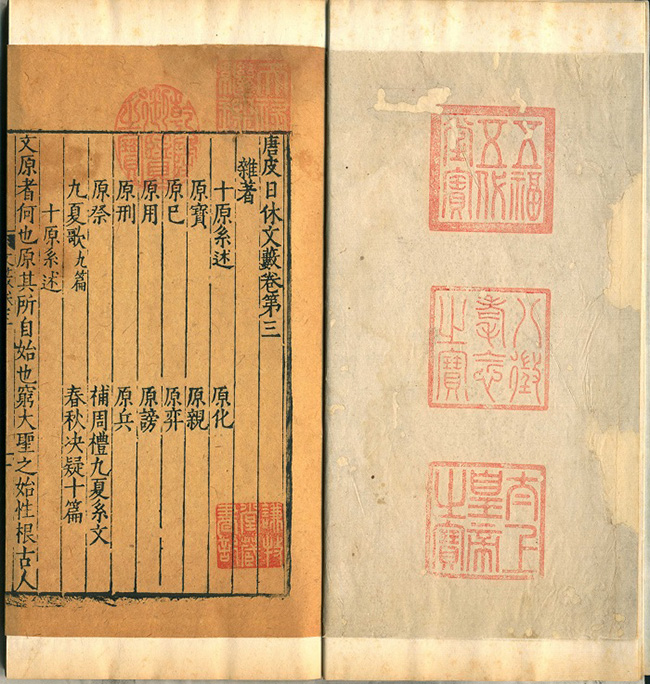 五福五代堂寶
八徵耄念之寶
太上皇帝之寶
乾隆御覽之寶
唐皮日休文藪卷第三
雜著
十原系述 原化
原寶 原親
原己 原弈
原用 原謗
原刑 原兵
原祭 補周禮九夏系文
九夏歌九篇 春秋决疑十篇
十原系述
文原者何也原其所自始也窮大聖之始性根古人
謙牧堂藏書記